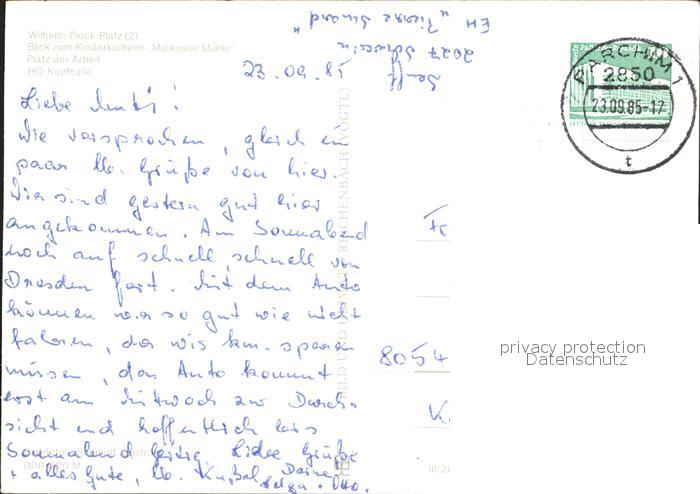 Wilhelm-Pieck-Platz (2)
Blick zum Kinderkurheim „Markower Mühle"
Platz der Arbeit
HO-Kaufhalle
EH "Pierre
2027 Schwerin
23.09.85
PARCHIM 1
2850
23.09.85-17
t
Liebe
Wie versprochen, gleich ein
paar lb. Grüße von hier.
Wir sind gestern gut hier
angekommen. Am Sonnabend
noch auf schnell, schnell von
Dresden fort. Mit dem Auto
können wir so gut wie nicht
fahren, da wir km. sparen
müssen, das Auto kommt
erst am Mittwoch zur Durch-
sicht und hoffentlich bis
Sonnabend fertig. Liebe Grüße
+ alles Gute, lb.
Helga + Otto.
8054
BILD UND HEIMAT REICHENBACH (VOGTL)
privacy protection
Datenschutz